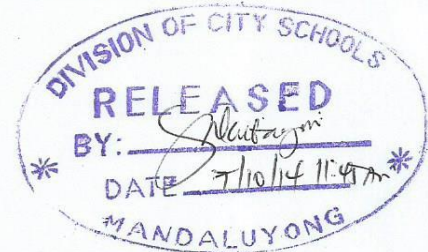 DIVISION OF CITY SCHOOLS
RELEASED
BY:
DATE 7/10/14 11:45 Am
MANDALUYONG